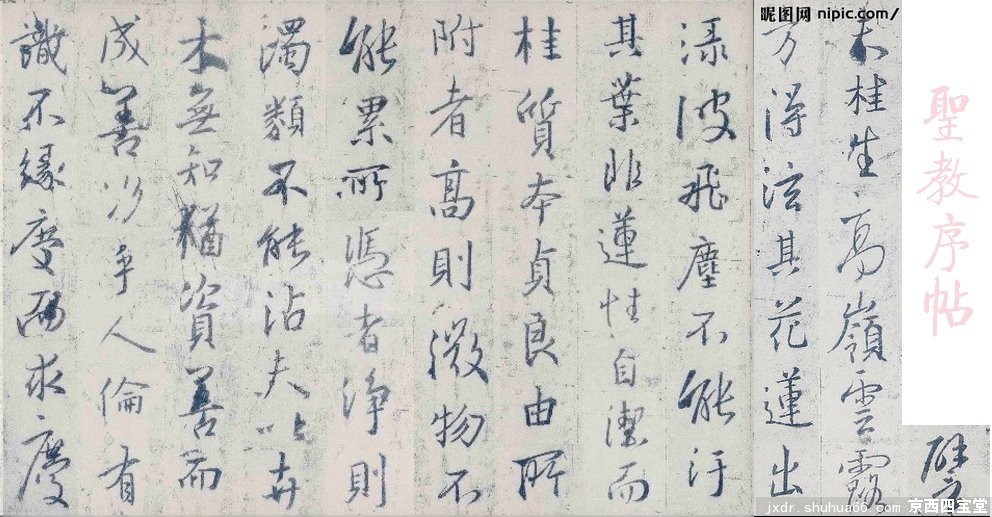 昵图网 nipic.com/
聖教序帖
譬
夫桂生高嶺雲露
方得泫其花蓮出
淥波飛塵不能汙
其葉非蓮性自潔而
桂質本貞良由所
附者高則微物不
能累所憑者淨則
濁類不能沾夫以卉
木無知猶資善而
成善況乎人倫有
識不緣慶而求慶
jxdr.shuhua66.com 京西四宝堂